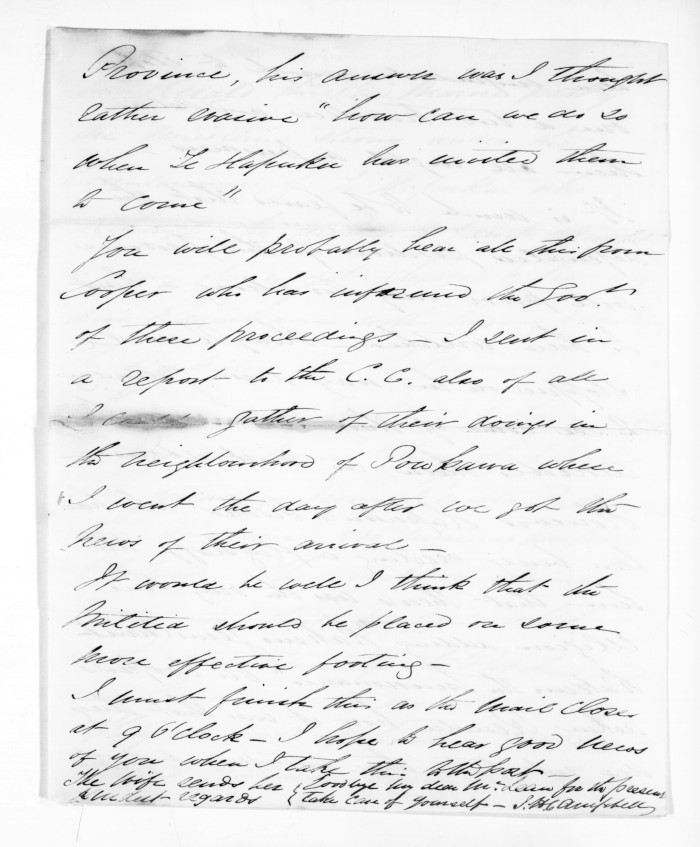 Province, his answer was I thought
rather evasive "how can we do so
when Te Hapuku has invited them
to come"
You will probably hear all this from
Cooper who has informed the Govt.
of these proceedings - I sent in
a report to the C. C. also of all
I could gather of their doings in
the neighbourhood of Poukawa where
I went the day after we got the
news of their arrival -
It would be well I think that the
Militia should be placed on some
more effective footing -
I must finish this as the Mail closes
at 9 O'Clock - I hope to hear good news
of you when I take this to the post -
The Wife sends her kindest regards
Goodbye my dear McLean for the present
take care of yourself - Campbell